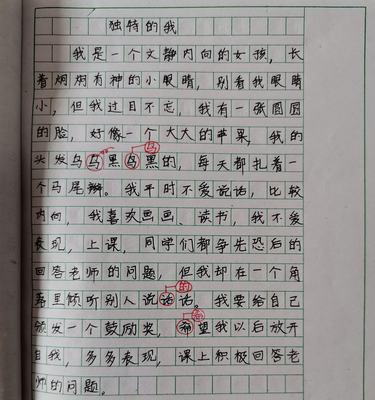 独特的我
我是一个文静内向的女孩，长
着炯炯有神的小眼睛，别看我眼睛
小，但我过目不忘，我有一张圆圆
的脸，好像一个大大的苹果，我的
乌
头发乌乌黑乌黑的，每天都扎着一
个马尾辫。我平时不爱说话，比较
内向，我喜欢画画、读书，我不爱
表现，上课，同学们都争先恐后的
回答老师的问题，但我却在一个角
的
落里倾听别人说话话。我要给自己
颁发一个鼓励奖，希望我以后放开
自我，多多表现，课上积极回答老
师的问题。